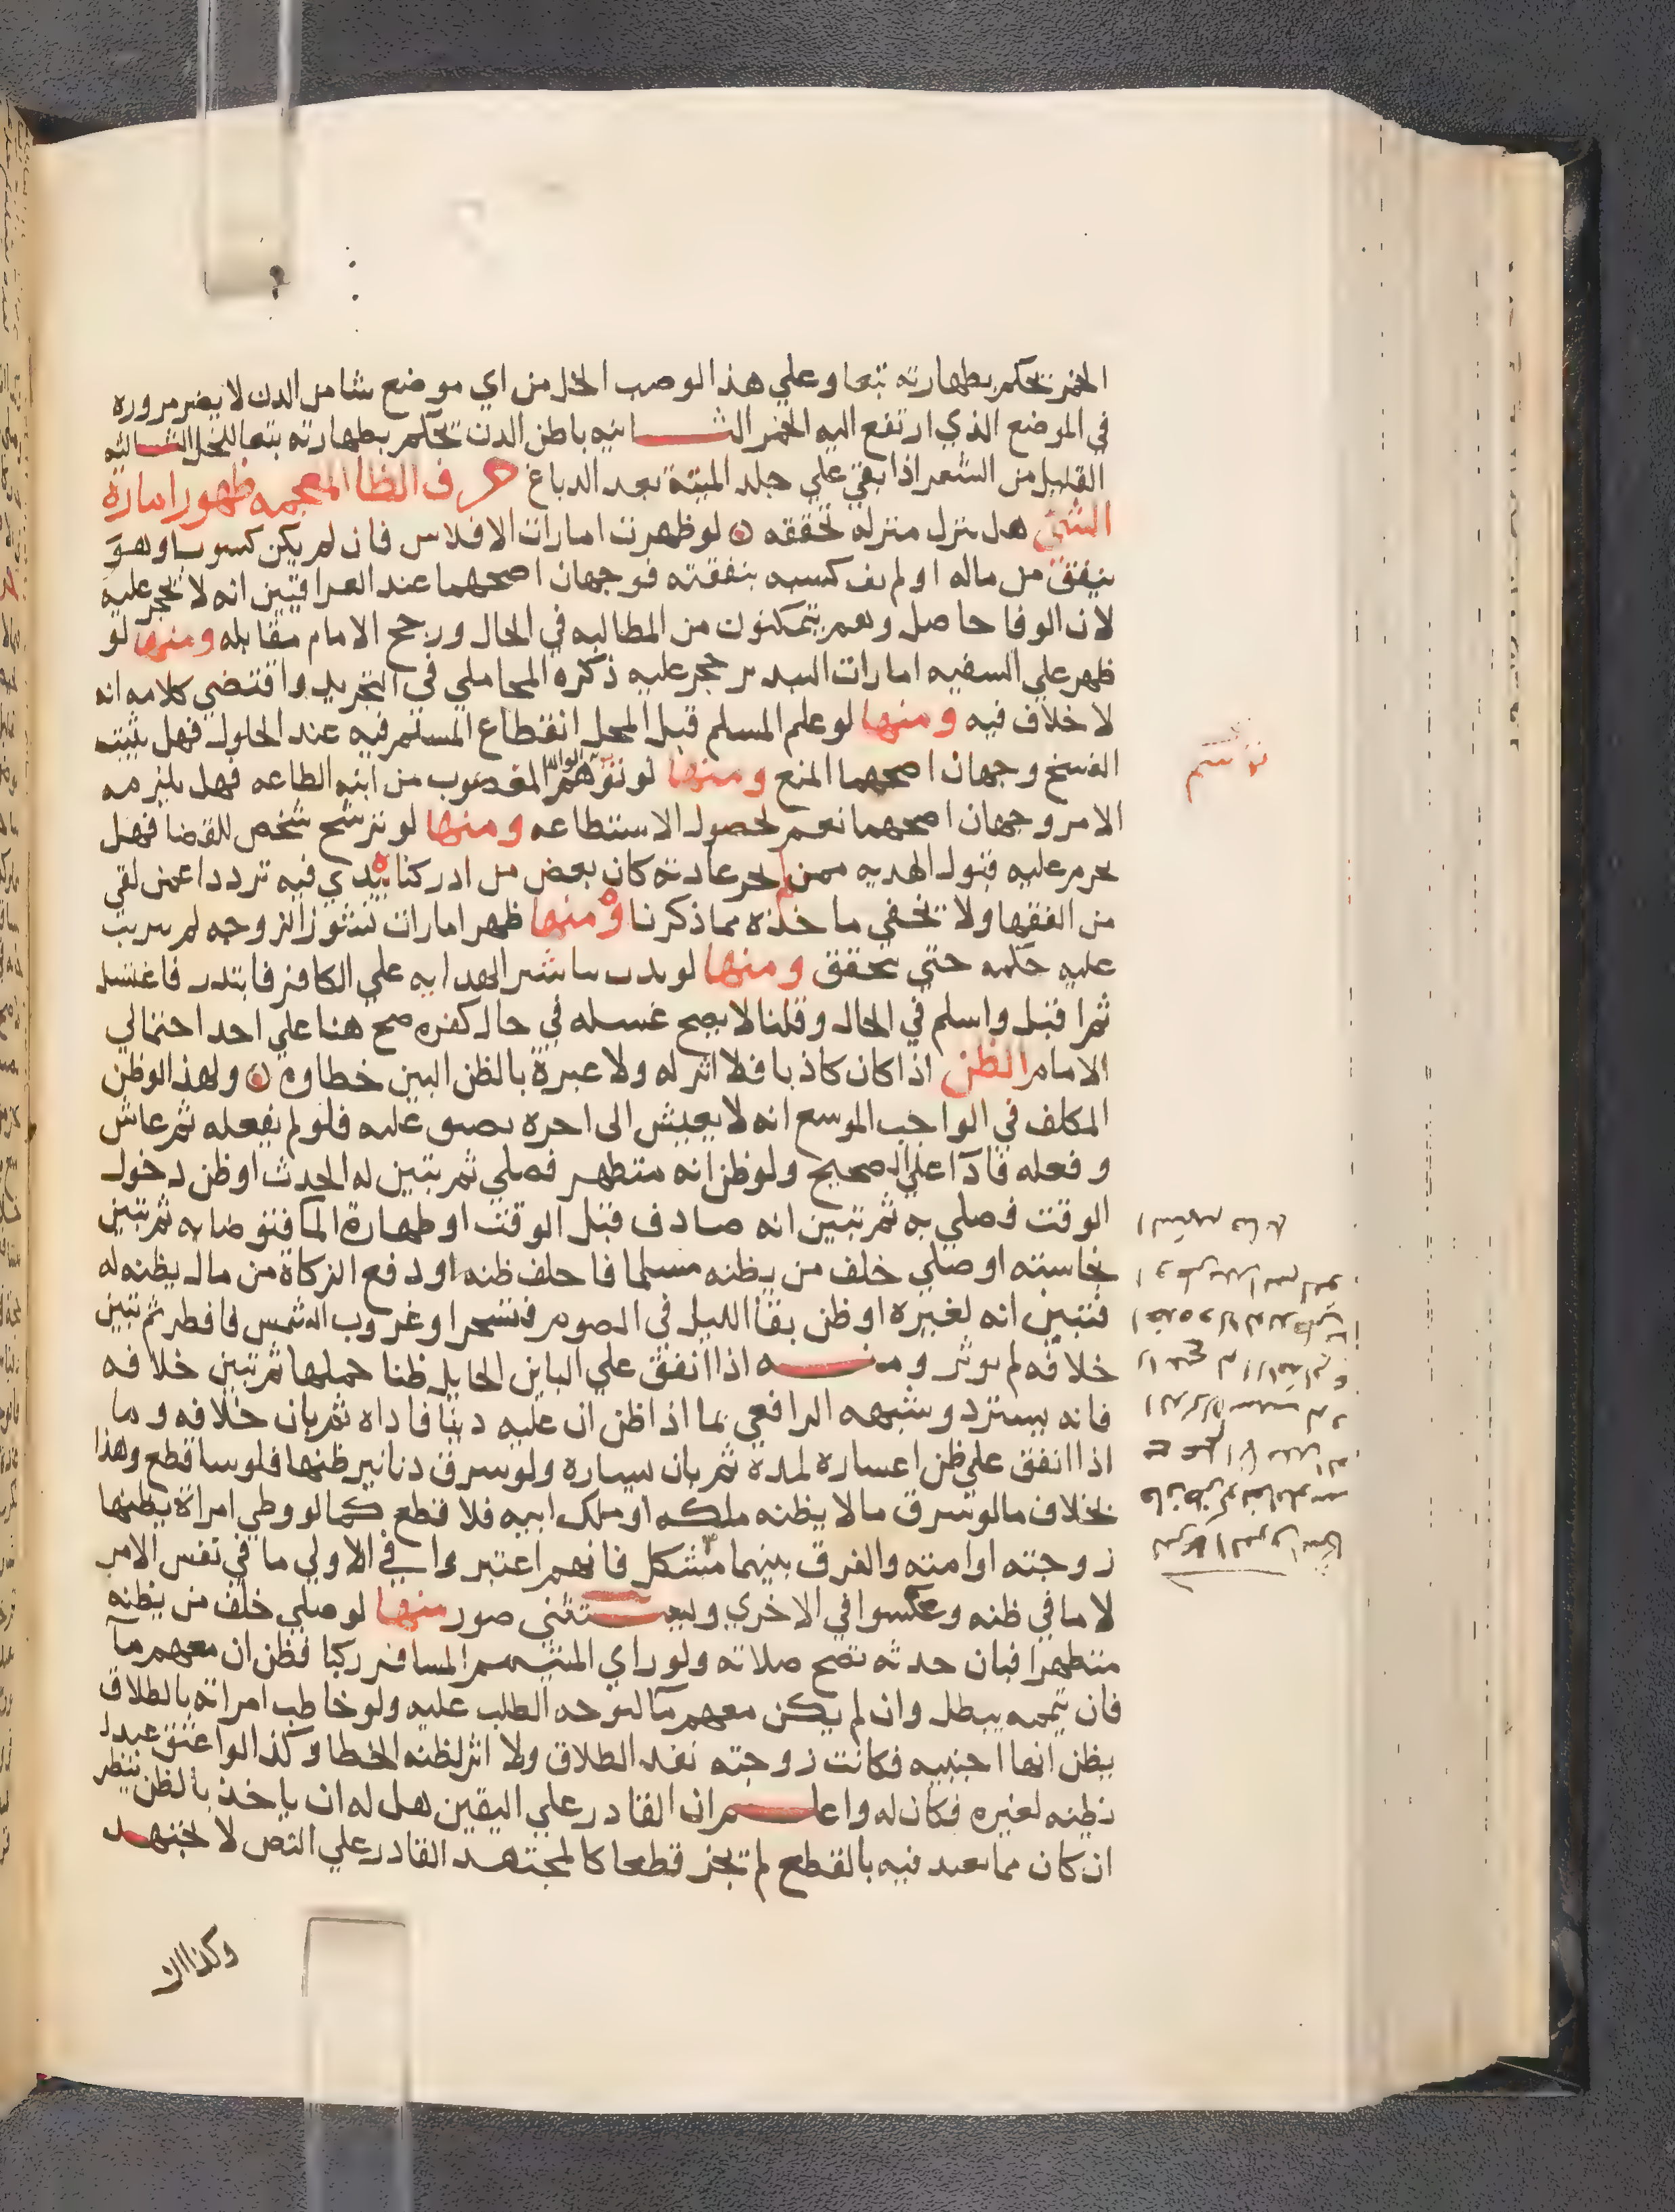 الخمر تحكم بطهارته تبعا وعلي هذا لو صب الخل من اي موضع شا من الدن لا يضر مروره
في الموضع الذي ارتفع اليه الخمر الثانيه باطن الدن تحكم بطهارته تبعا للخل الثالثه
القليل من الشعر اذا بقي علي جلد الميتة بعد الدباغ حرف الظا المعجمه ظهور امارة
الشي هل ينزل منزله تحققه لو ظهرت امارات الافلاس فان لم يكن كسوبا وهو
ينفق من ماله او لم يف كسبه بنفقته فوجهان اصحهما عند العراقيين انه لا يحجر عليه
لان الوفا حاصل وهم يتمكنون من المطالبه في الحال ورجح الامام مقابله ومنها لو
ظهر علي السفيه امارات التبذير حجر عليه ذكره المحاملي في التجريد واقتضي كلامه انه
لا خلاف فيه ومنها لو علم المسلم قبل المحل انقطاع المسلم فيه عند الحلول فهل يثبت
الفسخ وجهان اصحهما المنع ومنها لو توهم المغصوب من ابنه الطاعه فهل يلزمه
الامر وجهان اصحهما نعم لحصول الاستطاعه ومنها لو ترشح شخص للقضا فهل
يحرم عليه قبول الهديه ممن لم تجر عادته كان بعض من ادركنا يبدي فيه ترددا عمن لقي
من الفقها ولا تخفي ما خذه مما ذكرنا ومنها ظهر امارات نشوز الزوجه لم يرتب
عليه حكمه حتي تحقق ومنها لو بدت تباشير الهدايه علي الكافر فابتدر فاغتسل
ثم اقبل واسلم في الحال وقلنا لا يصح غسله في حال كفره صح هنا علي احد احتمالي
الامام الظن اذا كان كاذبا فلا اثر له ولا عبرة بالظن البين خطاوه ولهذا لو ظن
المكلف في الواجب الموسع انه لا يعيش الى اخره يضيق عليه فلو لم يفعله ثم عاش
وفعله فادا علي الصحيح ولو ظن انه متطهر فصلي ثم تبين له الحدث او ظن دخول
الوقت فصلي به ثم تبين انه صادف قبل الوقت او طهارة الما فتوضا به ثم تبين
نجاسته او صلي خلف من يظنه مسلما فاخلف ظنه او دفع الزكاة من مال يظنه له
فتبين انه لغيره او ظن بقا الليل في الصوم فتسحر او غروب الشمس فافطر ثم تبين
خلافه لم يوثر ومنه اذا انفق علي الباين الحايل ظنا حملها ثم تبين خلافه
فانه يسترد وشبهه الرافعي بما اذا ظن ان عليه دينا فاداه ثم بان خلافه وما
اذا انفق علي ظن اعساره لمدة ثم بان يساره ولو سرق دنانير ظنها فلوسا قطع وهذا
بخلاف ما لو سرق مالا يظنه ملكه او ملك ابيه فلا قطع كما لو وطي امراة يظنها
زوجته او امته والفرق بينهما مشكل فانهم اعتبروا في الاولي ما في نفس الامر
لا ما في ظنه وعكسوا في الاخري ويستثني صور منها لو صلي خلف من يظنه
متطهرا فبان حدثه تصح صلاته ولو راي المتيمم المسافر ركبا فظن ان معهم ما
فان تيممه يبطل وان لم يكن معهم ما لتوجه الطلب عليه ولو خاطب امراته بالطلاق
يظن انها اجنبيه فكانت زوجته نفذ الطلاق ولا اثر لظنه الخطا وكذا لو اعتق عبدا
يظنه لغيره فكان له واعلم ان القادر علي اليقين هل له ان ياخذ بالظن ننظر
ان كان مما تعبد فيه بالقطع لم تجز قطعا كالمجتهد القادر علي النص لا يجتهد
وكذا ان